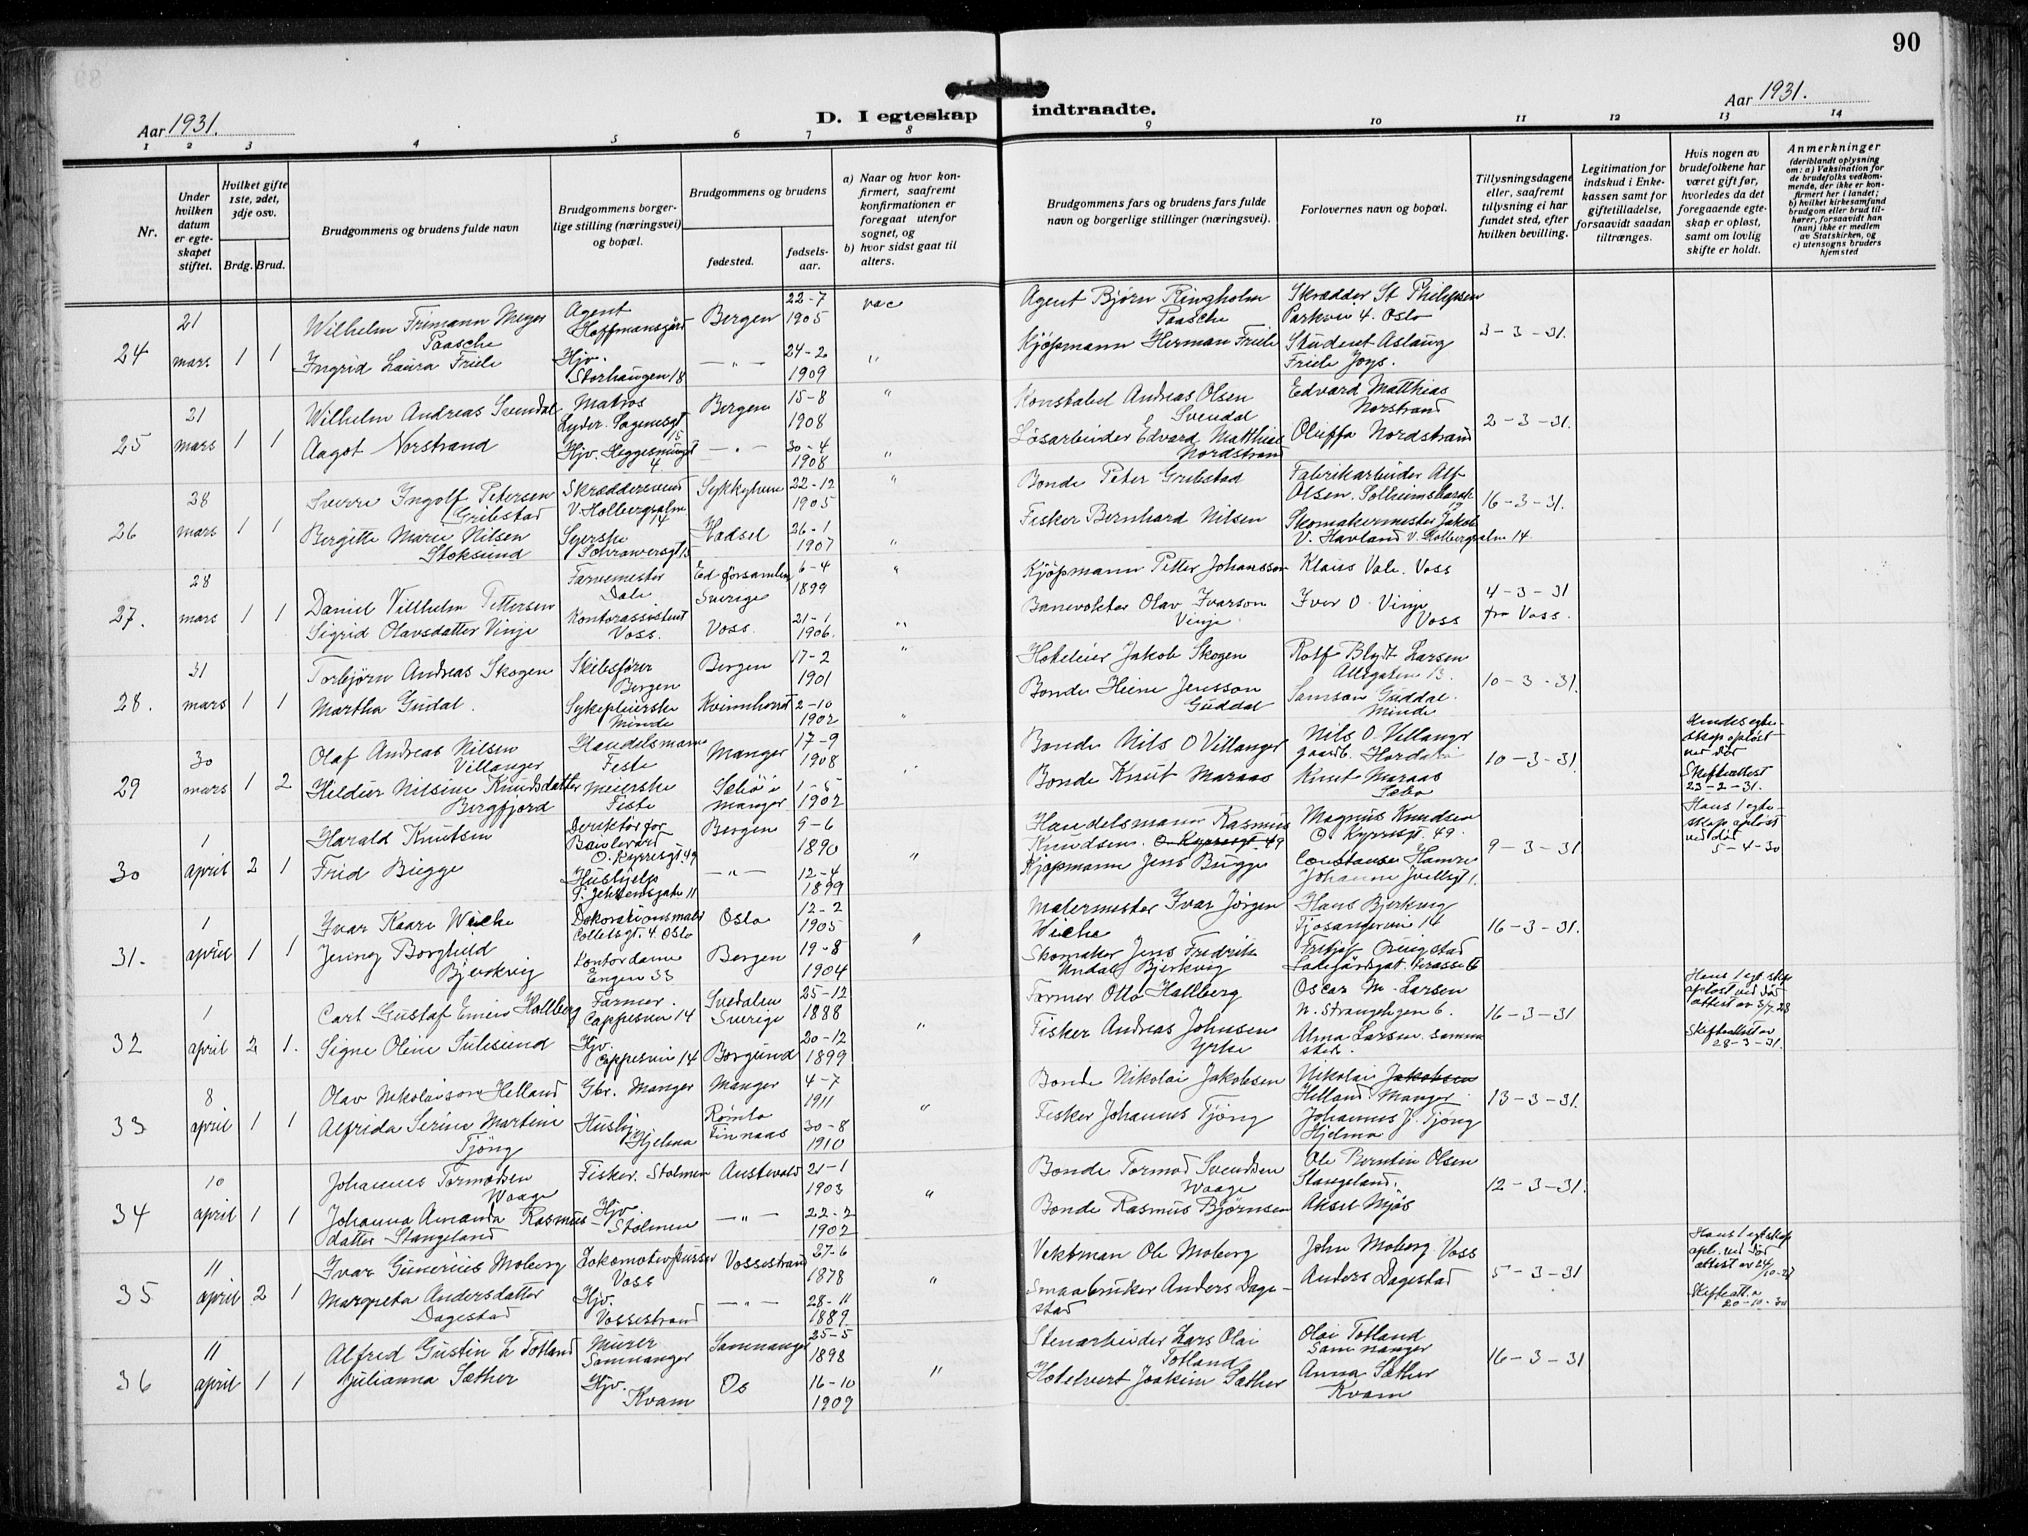 90
Aar 1931.
D. I egteskap indtraadte.
Aar 1931.
1 2 3 4 5 6 7 8 9 10 11 12 13 14
Nr.
Under hvilken datum er egteskapet stiftet.
Hvilket gifte 1ste, 2det, 3dje osv.
Brdg. Brud.
Brudgommens og brudens fulde navn
Brudgommens borgerlige stilling (næringsvei) og bopæl.
Brudgommens og brudens
fødested.
fødselsaar.
a) Naar og hvor konfirmert, saafremt konfirmationen er foregaat utenfor sognet, og
b) hvor sidst gaat til alters.
Brudgommens fars og brudens fars fulde navn og borgerlige stillinger (næringsvei).
Forlovernes navn og bopæl.
Tillysningsdagene eller, saafremt tillysning ei har fundet sted, efter hvilken bevilling.
Legitimation for indskud i Enkekassen samt for giftetilladelse, forsaavidt saadan tiltrænges.
Hvis nogen av brudefolkene har været gift før, hvorledes da det foregaaende egteskap er opløst, samt om lovlig skifte er holdt.
Anmerkninger
(deriblandt oplysning om: a) Vaksination for de brudefolks vedkommende, der ikke er konfirmert her i landet; b) hvilket kirkesamfund brudgom eller brud tilhører, forsaavidt han (hun) ikke er medlem av Statskirken, og c) utensogns bruders hjemsted
24 21 mars 1 1
Wilhelm Frimann Meyer Paasche
Agent Hoffmansgård
Bergen 22-7 1905 vac
Agent Bjørn Ringholm Paasche
Skrædder St Philipsen Parkvei 4. Oslo
3-3-31.
Ingrid Laura Friele
Hjv. Storhaugen 18
-"- 24-2 1909 "
Kjøpmann Herman Friele
Student Aslaug Friele Joys.
25 21 mars 1 1
Wilhelm Andreas Svendal
Matros Lyder Sagensgt 15
Bergen 15-8 1908 "
Konstabel Andreas Olsen Svendal
Edvard Matthias Norstrand
2-3-31.
Aagot Norstrand
Hjv. 4
-"- 30-4 1908 "
Løsarbeider Edvard Matthias Nordstrand
Oluffa Nordstrand
26 28 mars 1 1
Sverre Ingolf Petersen Gribstad
Skræddersvend V. Holbergsalm 14
Sykkylven 22-12 1905 "
Bonde Peter Gribstad
Fabrikarbeider Alf Olsen. Solheims
16-3-31.
Bergitte Marie Nilsen Stoksund
Syerske
Hadsel 26-1 1907 "
Fisker Bernhard Nilsen
Skomakermester Jakob V. Havland V. Holbergsalm 14
27. 28 mars 1 1
Daniel Vilhelm Pettersen
Farvemester Dale
Ed forsamlen Sverige 6-4 1899 "
Kjøpmann Petter Johansson
Klaus Vale. Voss
4-3-31 fra Voss.
Sigrid Olavsdatter Vinje
Kontorassistent Voss.
Voss. 21-1 1906. "
Banevokter Olav Ivarson Vinje
Iver O. Vinje Voss
28. 31 mars 1 1
Torbjørn Andreas Skogen
Skibsfører Bergen
Bergen 17-2 1901 "
Hoteleier Jakob Skogen
Rolf Blydt Larsen Allegaten 13.
10-3-31.
Martha Gudal.
Sykepleierske Minde
Kvinnherad 2-10 1902 "
Bonde Heine Jensson Guddal
Samson Guddal. Minde
29 30 mars 1 2
Olaf Andreas Nilsen Villanger
Handelsmann Feste
Manger 17-9 1908
Bonde Nils O Villanger
Nils O. Villanger gaardb. Hordabø
10-3-31
Hendes egteskap opløst ved død Skifteattest 23-2-31.
Hildur Nilsine Knudsdatter Bergfjord
Meierske Feste
Sæbø i Manger 1-5 1902
Bonde Knut Maraas
Knut Maraas Sæbø
30 1 april 2 1
Harald Knutsen
Direktør for Boulevard O. Kyrresgt. 49
Bergen 9-6 1890 "
Handelsmann Rasmus Knudsen. O. Kyrresgt. 49
Magnus Knudsen O. Kyrresgt. 49.
9-3-31
Hans 1 egteskap opløst ved død 5-4-30
Frid Bugge
Hushjelp
-"- 12-4 1899
Kjøpmann Jens Bugge
Constanse Hamre
31. 1 april 1 1
Ivar Kaare Wiche
Dekorationsmaler Colletsgt. 4. Oslo
Oslo 12-2 1905 "
Malermester Ivar Jørgen Wiche
Hans Bjerkvig Fjøsangerveien 14
16-3-31.
Jenny Borghild Bjerkvig
Kontordame Engen 33
Bergen 19-8 1904
Skomaker Jens Fredrik Undal Bjerkvig
Fritjof
32 1 april 2 1.
Carl Gustaf Emein Hallberg
Farmer. Cappesvei 14
Svedalen Sverige 25-12 1888 "
Farmer Otto Hallberg
Oscar M. Larsen N. Strangehagen 6.
16-3-31
Hans 1 egtskap opløst ved død attest av 3/7-28
Skifteattest av 28-3-31.
Signe Oline Sulesund
Hjv. Cappesvei 14
Borgund 20-12 1899
Fisker Andreas Johnsen Yrke
Alma Larsen. samme sted.
33 8 april 1 1
Olav Nikolaison Helland
Gbr. Manger
Manger 4-7 1911 "
Bonde Nikolai Jakobsen
Nikolai Jakobsen Helland Manger
13-3-31.
Alfrida Serine Martine Tjöng
Hushj. Hjelma
Rømlo Finnaas 30-8 1910
Fisker Johannes Tjöng
Johannes J. Tjöng Hjelma
34 10 april 1 1
Johannes Tormodsen Waage
Fisker. Stolmen
Austevold 21-1 1903 "
Bonde Tormod Svendsen Waage
Ole Berntin Olsen Stangeland.
12-3-31.
Johanna Amanda Rasmusdatter Stangeland
Hjv. Stolmen
-"- 22-2 1902
Bonde Rasmus Bjørnsen
Aksel Mjøs
35 11 april 2 1
Ivar Gunerius Moberg
Lokomotivpusser Voss
Vossestrand 27-6 1878 "
Vektman Ole Moberg
John Moberg Voss
5-3-31
Hans 1 egtskap opl. ved død attest av 24/10-27
Skifteatt. a 20-10-30
Margreta Andersdatter Dagestad
Hjv. Vossestrand
-"- 28-11 1889.
Smaabruker Anders Dagestad
Anders Dagestad
36 11 april 1 1
Alfred Gustin L Totland
Murer Samnanger
Samnanger 25-5 1898 "
Stenarbeider Lars Olai Totland
Olai Totland Samnanger
16-3-31
Julianna Sæther
Hjv. Kvam
Os 16-10 1909
Hotelvert Joakim Sæther
Anna Sæther Kvam